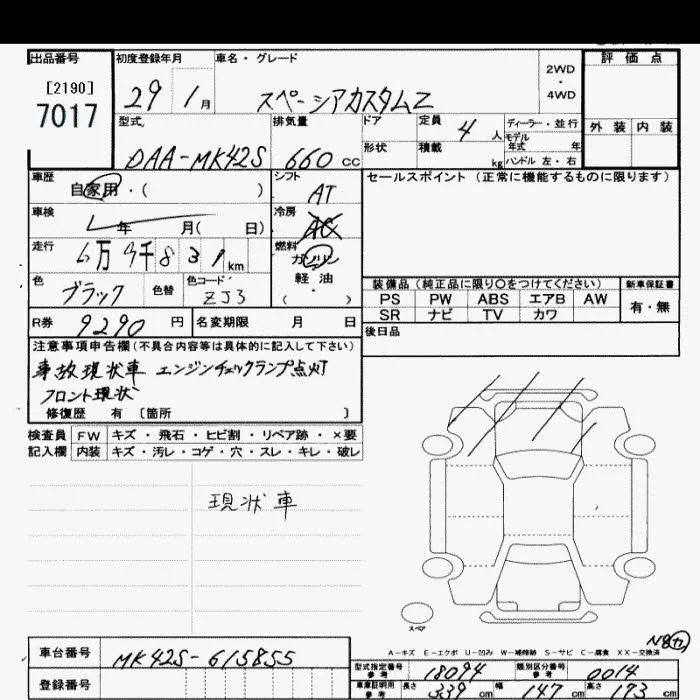 出品番号
[2190]
7017
初度登録年月
29 1月
車名・グレード
スペーシアカスタムZ
2WD
・
4WD
評価点
外装 内装
型式
DAA-MK42S
排気量
660 cc
ドア
形状
定員 4人
積載 kg
ディーラー・並行
モデル
年式 年
ハンドル 左・右
車歴
自家用・( )
シフト
AT
セールスポイント (正常に機能するものに限ります)
車検
年 月( 日)
冷房
AC
走行
8 3 1 km
燃料
ガソリン
軽油
( )
色
ブラック
色替
色コード
ZJ3
装備品 (純正品に限り○をつけてください)
新車保証書
PS PW ABS エアB AW
SR ナビ TV カワ
有・無
R券 9290 円
名変期限 月 日
後日品
注意事項申告欄(不具合内容等は具体的に記入して下さい)
事故現状車 エンジンチェックランプ点灯
フロント現状
修復歴 有 [箇所 ]
検査員 FW キズ・飛石・ヒビ割・リペア跡・×要
記入欄 内装 キズ・汚レ・コゲ・穴・スレ・キレ・破レ
現状車
スペア
A-キズ E-エクボ U-凹み W-補修跡 S-サビ C-腐食 XX-交換済
車台番号 MK42S-615855
登録番号
型式指定番号
参考
18094
類別区分番号
参考
0014
車庫証明用
参考
長さ 339 cm 幅 147 cm 高さ 173 cm